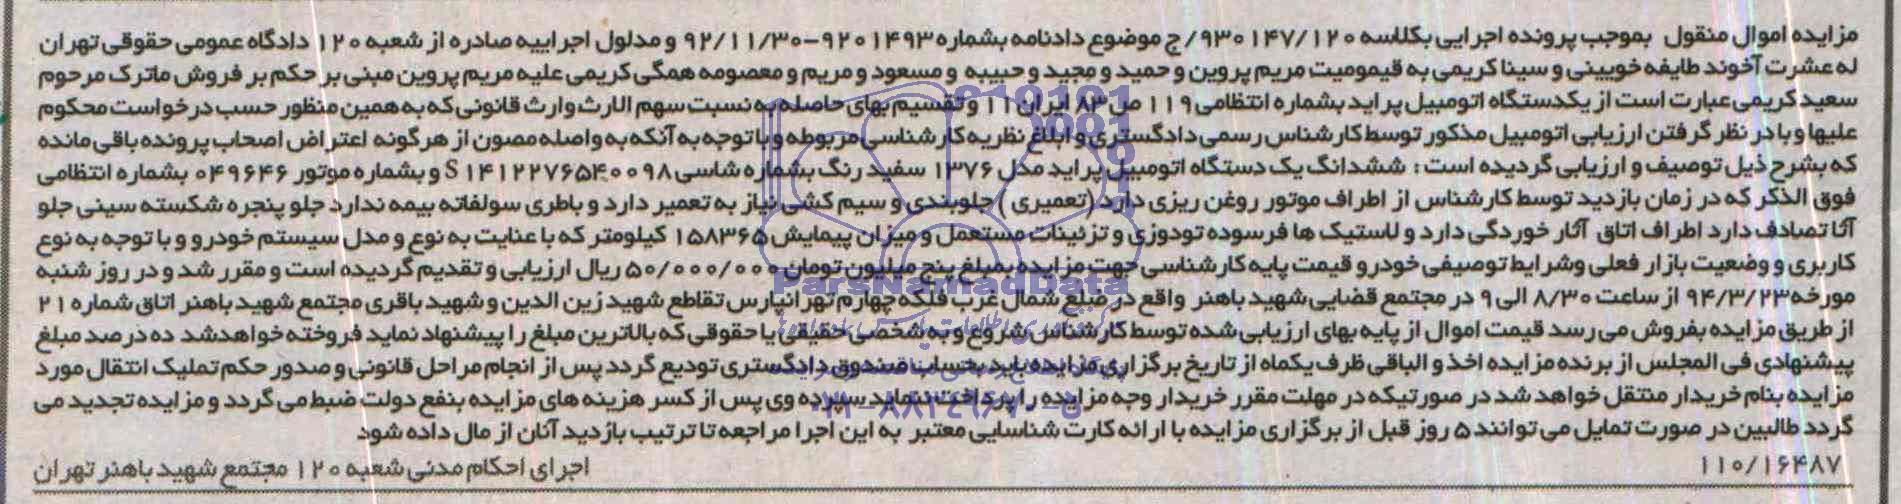 مزایده اموال منقول بموجب پرونده اجرایی بکلاسه ۹۳۰۱۴۷/۱۲۰/ج موضوع دادنامه بشماره ۹۲۰۱۴۹۳-۹۲/۱۱/۳۰ و مدلول اجراییه صادره از شعبه ۱۲۰ دادگاه عمومی حقوقی تهران
له عشرت آخوند طایفه خویینی و سینا کریمی به قیمومیت مریم پروین و حمید و مجید و حبیبه و مسعود و مریم و معصومه همگی کریمی علیه مریم پروین مبنی بر حکم بر فروش ماترک مرحوم
سعید کریمی عبارت است از یکدستگاه اتومبیل پراید بشماره انتظامی ۱۱۹ ص ۸۳ ایران ۱۱ و تقسیم بهای حاصله به نسبت سهم الارث وارث قانونی که به همین منظور حسب درخواست محکوم
علیها و با در نظر گرفتن ارزیابی اتومبیل مذکور توسط کارشناس رسمی دادگستری و ابلاغ نظریه کارشناسی مربوطه و با توجه به آنکه به واصله مصون از هرگونه اعتراض اصحاب پرونده باقی مانده
که بشرح ذیل توصیف و ارزیابی گردیده است : ششدانگ یک دستگاه اتومبیل پراید مدل ۱۳۷۶ سفید رنگ بشماره شاسی S۱۴۱۲۲۷۶۵۴۰۰۹۸ و بشماره موتور ۰۴۹۶۴۶ بشماره انتظامی
فوق الذکر که در زمان بازدید توسط کارشناس از اطراف موتور روغن ریزی دارد (تعمیری) جلوبندی و سیم کشی نیاز به تعمیر دارد و باطری سولفاته بیمه ندارد جلو پنجره شکسته سینی جلو
آثا تصادف دارد اطراف اتاق آثار خوردگی دارد و لاستیک ها فرسوده تودوزی و تزئینات مستعمل و میزان پیمایش ۱۵۸۳۶۵ کیلومتر که با عنایت به نوع و مدل سیستم خودرو و با توجه به نوع
کاربری و وضعیت بازار فعلی وشرایط توصیفی خودرو قیمت پایه کارشناسی جهت مزایده بمبلغ پنج میلیون تومان ۵۰/۰۰۰/۰۰۰ ریال ارزیابی و تقدیم گردیده است و مقرر شد و در روز شنبه
مورخه ۹۴/۳/۲۳ از ساعت ۸/۳۰ الی ۹ در مجتمع قضایی شهید باهنر واقع در ضلع شمال غرب فلکه چهارم تهرانپارس تقاطع شهید زین الدین و شهید باقری مجتمع شهید باهنر اتاق شماره ۲۱
از طریق مزایده بفروش می رسد قیمت اموال از پایه بهای ارزیابی شده توسط کارشناس شروع و به شخصی حقیقی یا حقوقی که بالاترین مبلغ را پیشنهاد نماید فروخته خواهد شد ده درصد مبلغ
پیشنهادی فی المجلس از برنده مزایده اخذ و الباقی ظرف یکماه از تاریخ برگزاری مزایده باید بحساب صندوق دادگستری تودیع گردد پس از انجام مراحل قانونی و صدور حکم تملیک انتقال مورد
مزایده بنام خریدار منتقل خواهد شد در صورتیکه در مهلت مقرر خریدار وجه مزایده را پرداخت ننماید سپرده وی پس از کسر هزینه های مزایده بنفع دولت ضبط می گردد و مزایده تجدید می
گردد طالبین در صورت تمایل می توانند ۵ روز قبل از برگزاری مزایده با ارائه کارت شناسایی معتبر به این اجرا مراجعه تا ترتیب بازدید آنان از مال داده شود
۱۱۰/۱۶۴۸۷ اجرای احکام مدنی شعبه ۱۲۰ مجتمع شهید باهنر تهران
ParsNamadData